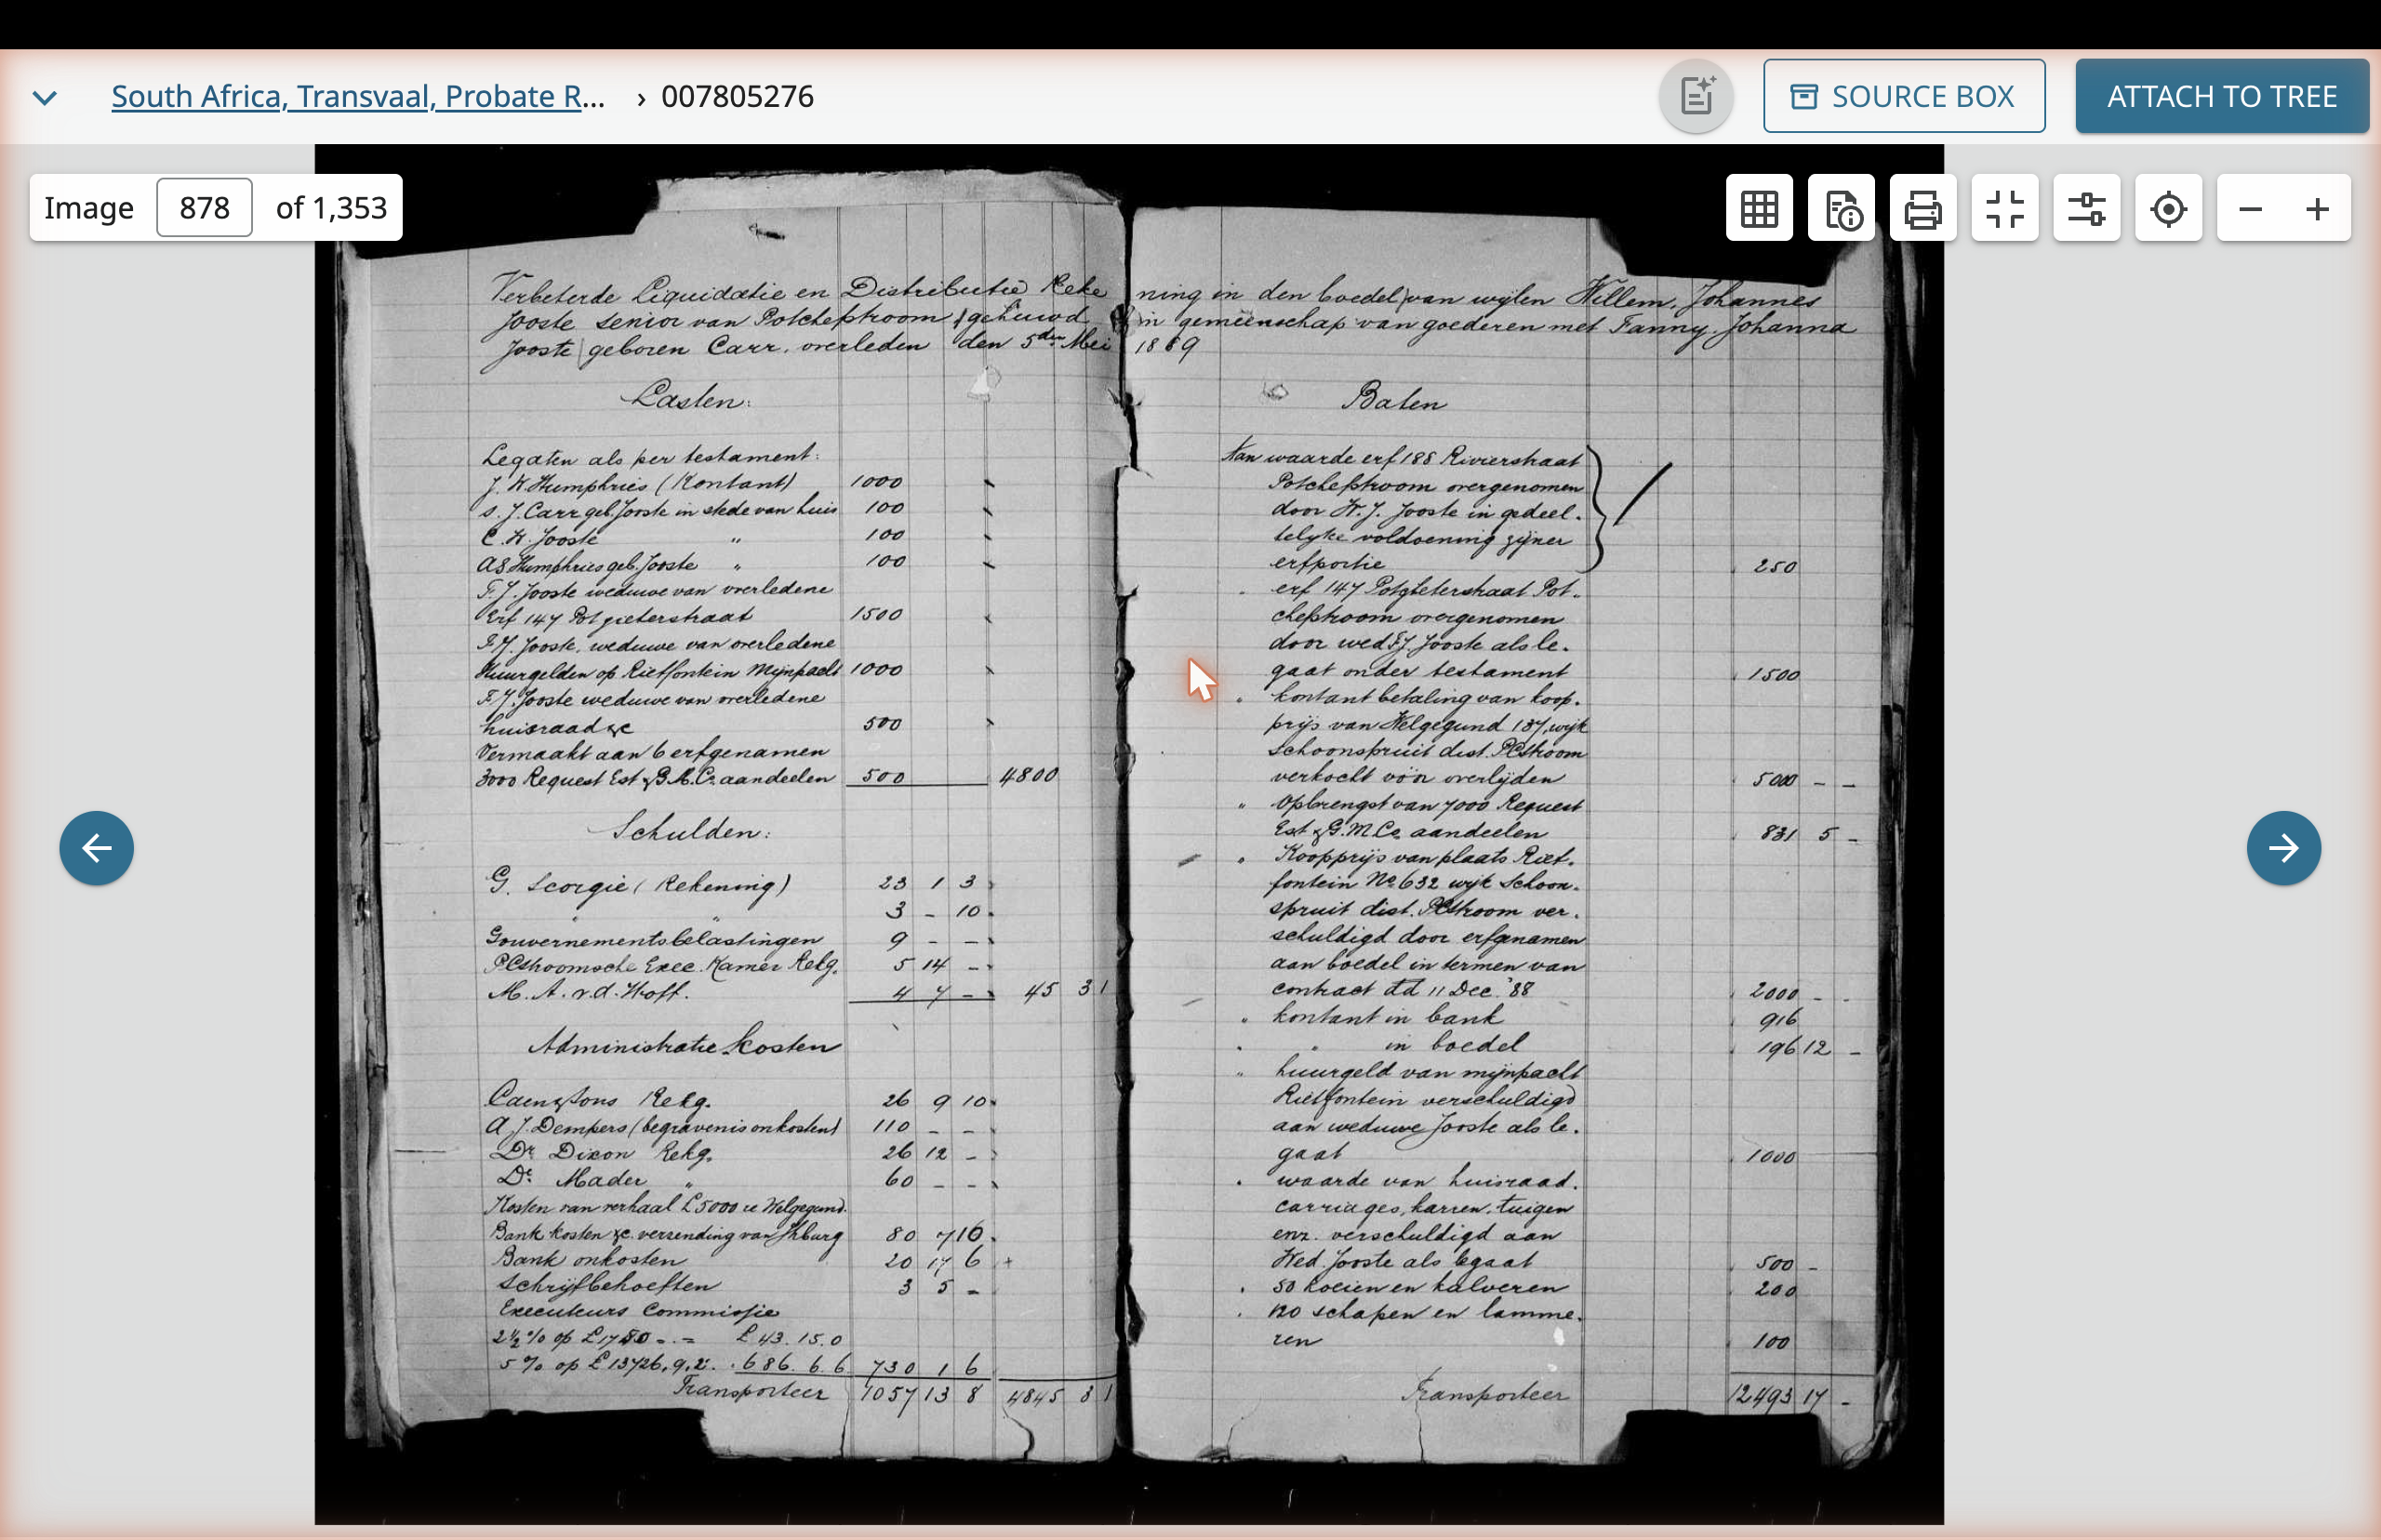 South Africa, Transvaal, Probate R... › 007805276
SOURCE BOX
ATTACH TO TREE
Image 878 of 1,353
Verbeterde Liquidatie en Distributie Rekening in den boedel van wijlen Willem Johannes
Jooste senior van Potchefstroom gehuwd in gemeenschap van goederen met Fanny Johanna
Jooste geboren Carr. overleden den 5den Mei 1889
Lasten:
Legaten als per testament:
J. W. Humphries (Kontant) 1000
S. J. Carr geb. Jooste in stede van huis 100
C. W. Jooste " 100
A S Humphries geb. Jooste " 100
F. J. Jooste weduwe van overledene
Erf 147 Potgieterstraat 1500
F. J. Jooste, weduwe van overledene
Huurgelden op Rietfontein Mijnpacht 1000
F. J. Jooste weduwe van overledene
huisraad &c 500
Vermaakt aan 6 erfgenamen
3000 Request Est & G. M. Co. aandeelen 500 4800
Schulden:
G. Scorgie (Rekening) 23 1 3
" " 3 - 10
Gouvernementsbelastingen 9 - -
PCstroomsche Exec. Kamer Rekg. 5 14 -
M. A. v.d. Hoff. 4 7 - 45 3 1
Administratie kosten
& Sons Rekg. 26 9 10
A. J. Dempers (begravenis onkosten) 110 - -
Dr Dixon Rekg. 26 12 -
Dr. Mader " 60 - -
Kosten van verhaal £5000 re Welgegund.
Bank kosten &c. verzending van Jhburg 80 7 10
Bank onkosten 20 17 6
Schrijfbehoeften 3 5 -
Executeurs Commissie
2½% op £1750 - . - £43. 15. 0
5% op £13726. 9. 2. . 686. 6. 6 730 1 6
Transporteer 1057 13 8 4845 3 1
Baten
Aan waarde erf 188 Rivierstraat
Potchefstroom overgenomen
door W. J. Jooste in gedeel-
telyke voldoening zijner
erfportie 250
" erf 147 Potgieterstraat Pot-
chefstroom overgenomen
door wed F. J. Jooste als le-
gaat onder testament 1500
" kontant betaling van koop-
prijs van Welgegund 187, wijk
Schoonspruit dist. PCstroom
verkocht voor overlijden 5000 - -
" Opbrengst van 7000 Request
Est & G. M. Co. aandeelen 831 5 -
" Koopprijs van plaats Riet-
fontein No 632 wijk Schoon-
spruit dist. PCstroom ver-
schuldigd door erfgenamen
aan boedel in termen van
contract dd 11 Dec. '88 2000 - -
" kontant in bank 916
" " in boedel 196 12 -
" huurgeld van mijnpacht
Rietfontein verschuldigd
aan weduwe Jooste als le-
gaat 1000
" waarde van huisraad.
carriages, karren, tuigen
enz. verschuldigd aan
Wed. Jooste als legaat 500 -
" 50 koeien en kalveren 200
" 120 schapen en lamme-
ren 100
Transporteer 12493 17 -